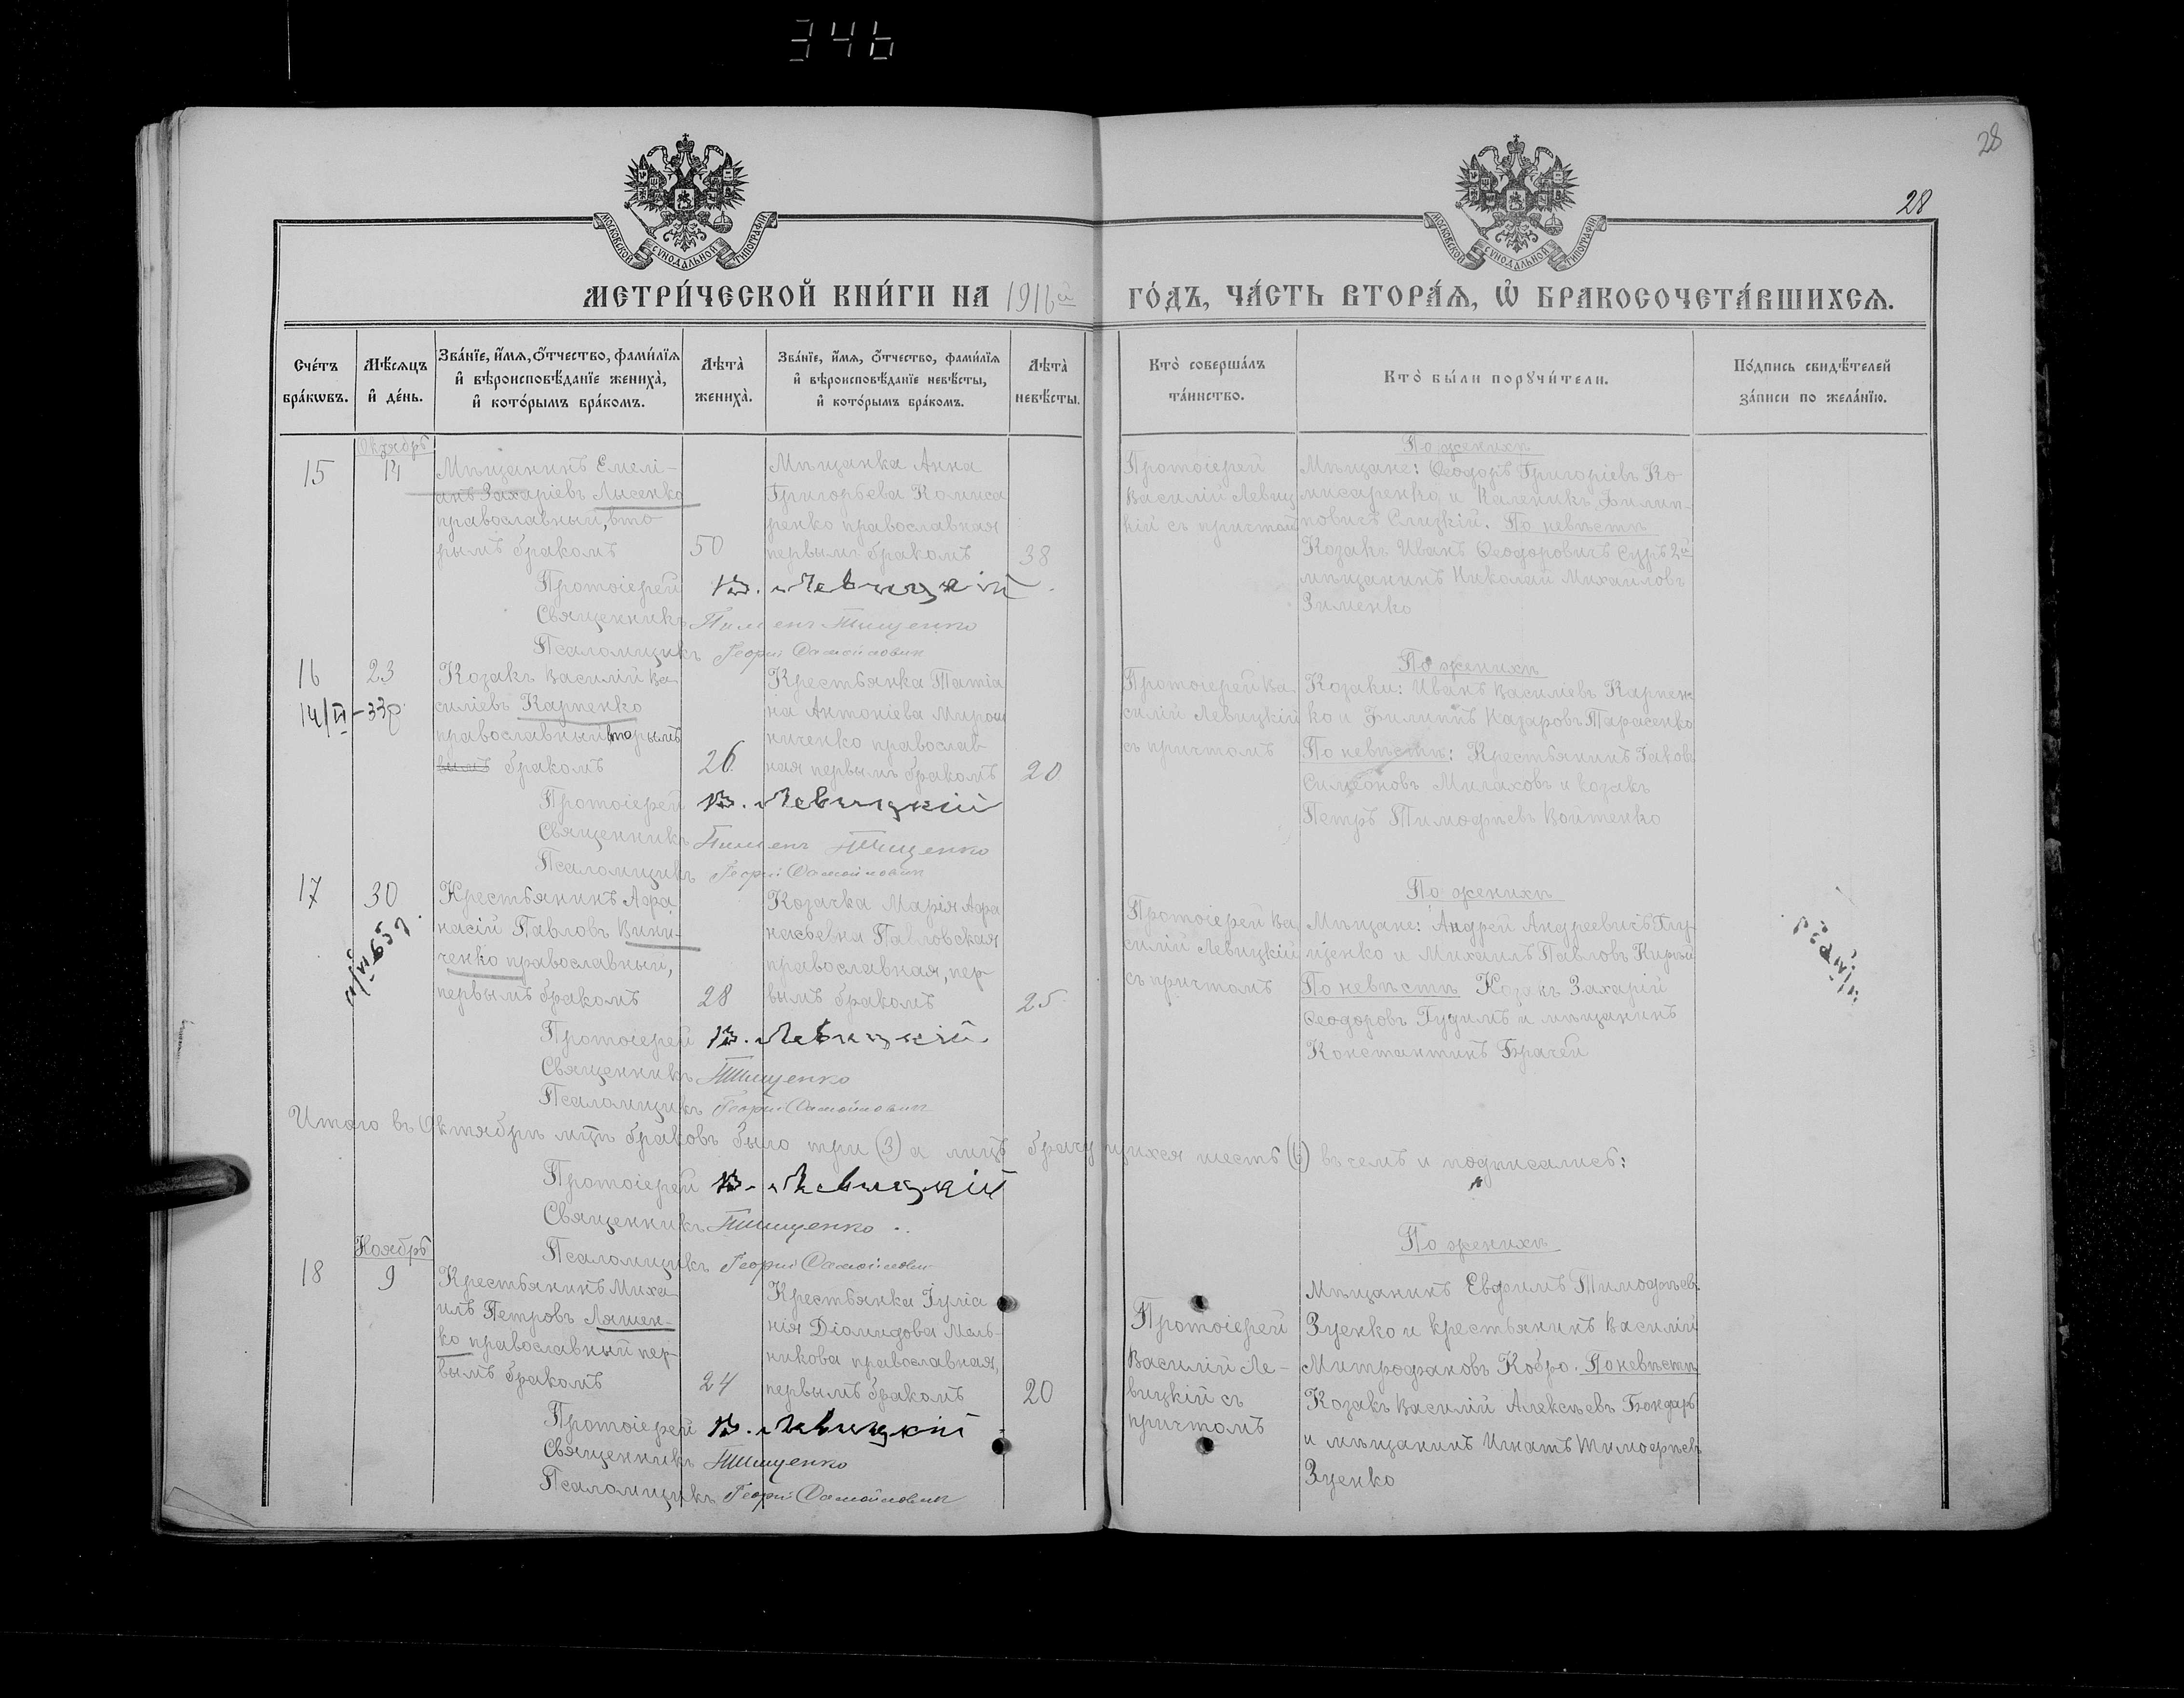 346
28
28
МОСКОВСКОЙ СѴНОДАЛЬНОЙ ТИПОГРАФІИ
МОСКОВСКОЙ СѴНОДАЛЬНОЙ ТИПОГРАФІИ
МЕТРИ́ЧЕСКОЙ КНИ́ГИ НА 1916й ГО́ДЪ, ЧА́СТЬ ВТОРА́Ѧ, Ѡ҆ БРАКОСОЧЕТА́ВШИХСѦ.
Сче́тъ бра́кѡвъ.
Мѣ́сѧцъ и҆ де́нь.
Зва́нїе, и҆́мѧ, ѻ҆́тчество, фами́лїѧ и҆ вѣроисповѣ́данїе жениха̀, и҆ кото́рымъ бра́комъ.
Лѣта̀ жениха̀.
Зва́нїе, и҆́мѧ, ѻ҆́тчество, фами́лїѧ и҆ вѣроисповѣ́данїе невѣ́сты, и҆ кото́рымъ бра́комъ.
Лѣта̀ невѣ́сты.
Кто̀ соверша́лъ та́инство.
Кто̀ бы́ли порꙋчи́тели.
По́дпись свидѣ́телей за́писи по жела́нїю.
Октябрь
15
14
Мѣщанинъ Емелі-
анъ Захаріевъ Лысенко
православный, вто
рымъ бракомъ
50
Мѣщанка Анна
Григорьева Комиса
ренко православная
первымъ бракомъ
38
Протоіерей
Василій Левиц
кій съ причтом
По женихѣ
Мѣщане: Ѳеодоръ Григоріевъ Ко
мисаренко и Каленикъ Филип-
повичъ Слизкій. По невѣстѣ
Козакъ Иванъ Ѳеодоровичъ Суръ 2й
мѣщанинъ Николай Михайловъ
Зименко
Протоіерей В. Левицкій
Священникъ Пименъ Тищенко
Псаломщикъ Георгій Самойлович
16
23
14/VI-33р
Козакъ Василій Ва
силіевъ Карпенко
православный вторымъ
вымъ бракомъ
26
Крестьянка Татіа
на Антоніева Мирош
ниченко православ
ная первымъ бракомъ
20
Протоіерей Ва
силій Левицкій
съ причтомъ
По женихѣ
Козаки: Иванъ Василіевъ Карпен
ко и Филиппъ Назаровъ Тарасенко
По невѣстѣ: Крестьянинъ Іаковъ
Симеоновъ Милаховъ и козакъ
Петръ Тимофѣевъ Воитенко
Протоіерей В. Левицкій
Священникъ Пименъ Тищенко
Псаломщикъ Георгій Самойлович
17
30
Крестьянинъ Афа
насій Павловъ Вини-
ченко православный,
первымъ бракомъ
28
Козачка Марія Афа
насьевна Павловская
православная, пер
вымъ бракомъ
25
Протоіерей Ва
силій Левицкій
съ причтомъ
По женихѣ
Мѣщане: Андрей Андреевичъ Глу
щенко и Михаилъ Павловъ
По невѣстѣ Козакъ Захарій
Ѳеодоровъ Гудимъ и мѣщанинъ
Константинъ Брачей
Протоіерей В. Левицкій
Священникъ Тищенко
Псаломщикъ Георгій Самойлович
Итого въ Октябрѣ мцѣ браковъ было три (3) а лицъ брачущихся шесть (6) въ чемъ и подписались:
Протоіерей В. Левицкій
Священникъ Тищенко
Псаломщикъ Георгій Самойлович
Ноябрь
18
9
Крестьянинъ Миха
илъ Петровъ Ляшен-
ко православный пер
вымъ бракомъ
24
Крестьянка Іуліа
нія Діомидова Мель-
никова православная,
первымъ бракомъ
20
Протоіерей
Василій Ле-
вицкій съ
причтомъ
По женихѣ
Мѣщанинъ Евфимъ Тимофѣев
Зценко и крестьянинъ Василій
Митрофановъ Кобро. По невѣстѣ
Козакъ Василій Алексѣевъ Бондарь
и мѣщанинъ Игнатъ Тимофѣевъ
Зценко
Протоіерей В. Левицкій
Священникъ Тищенко
Псаломщикъ Георгій Самойлович